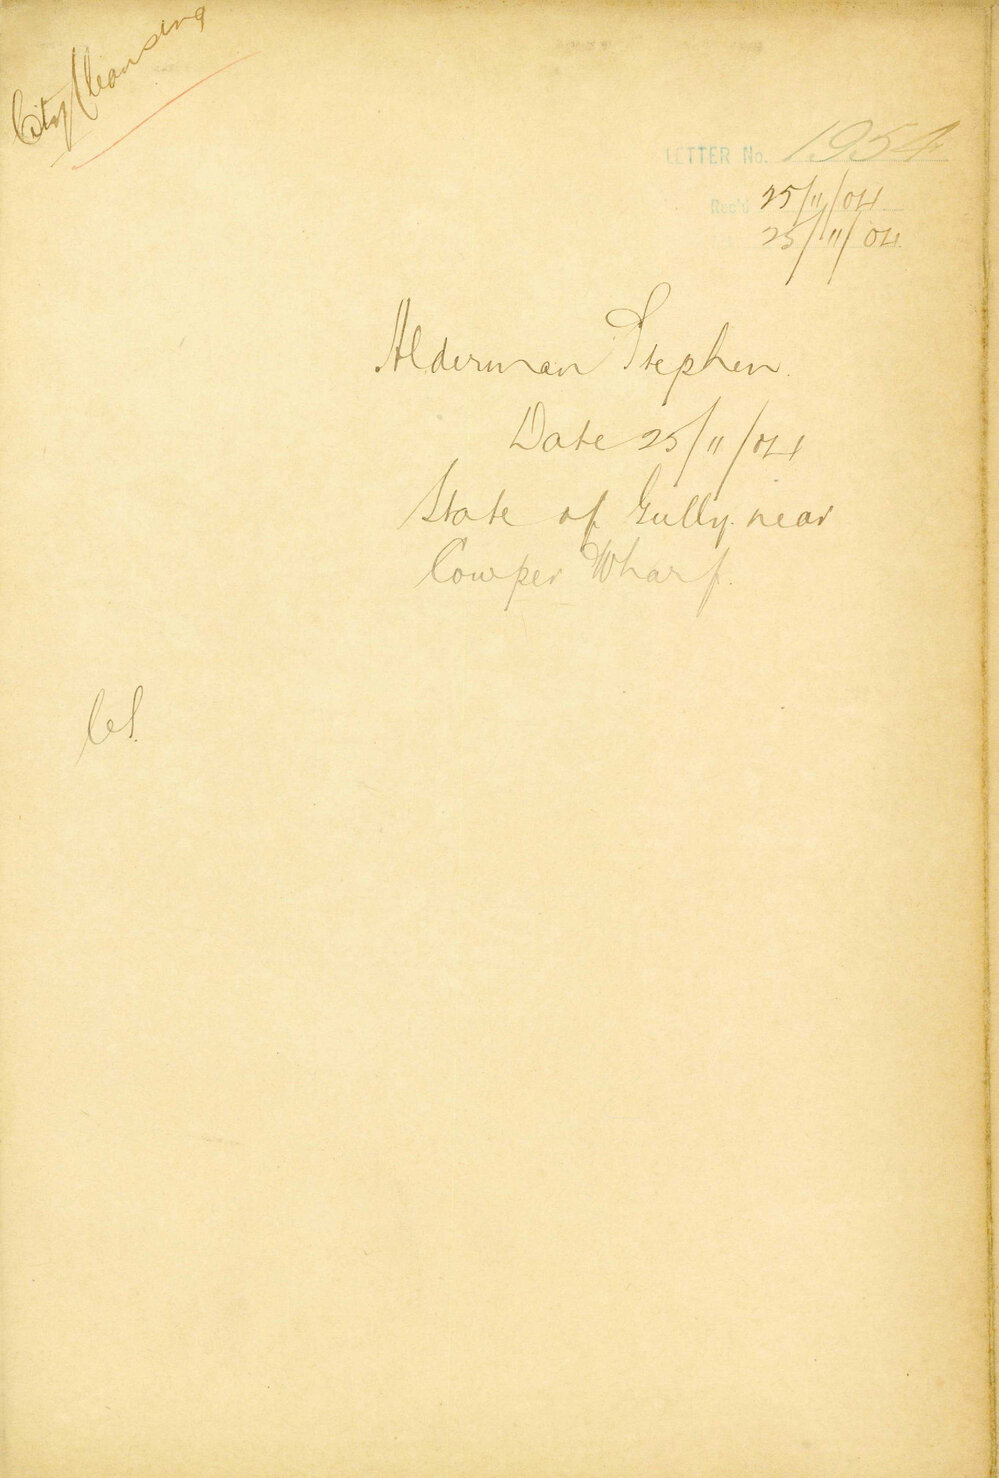 City Cleansing
LETTER No. 1954
Rec'd 25/11/04
25/11/04
Alderman Stephen.
Date 25/11/04
State of Gully near
Cowper Wharf.